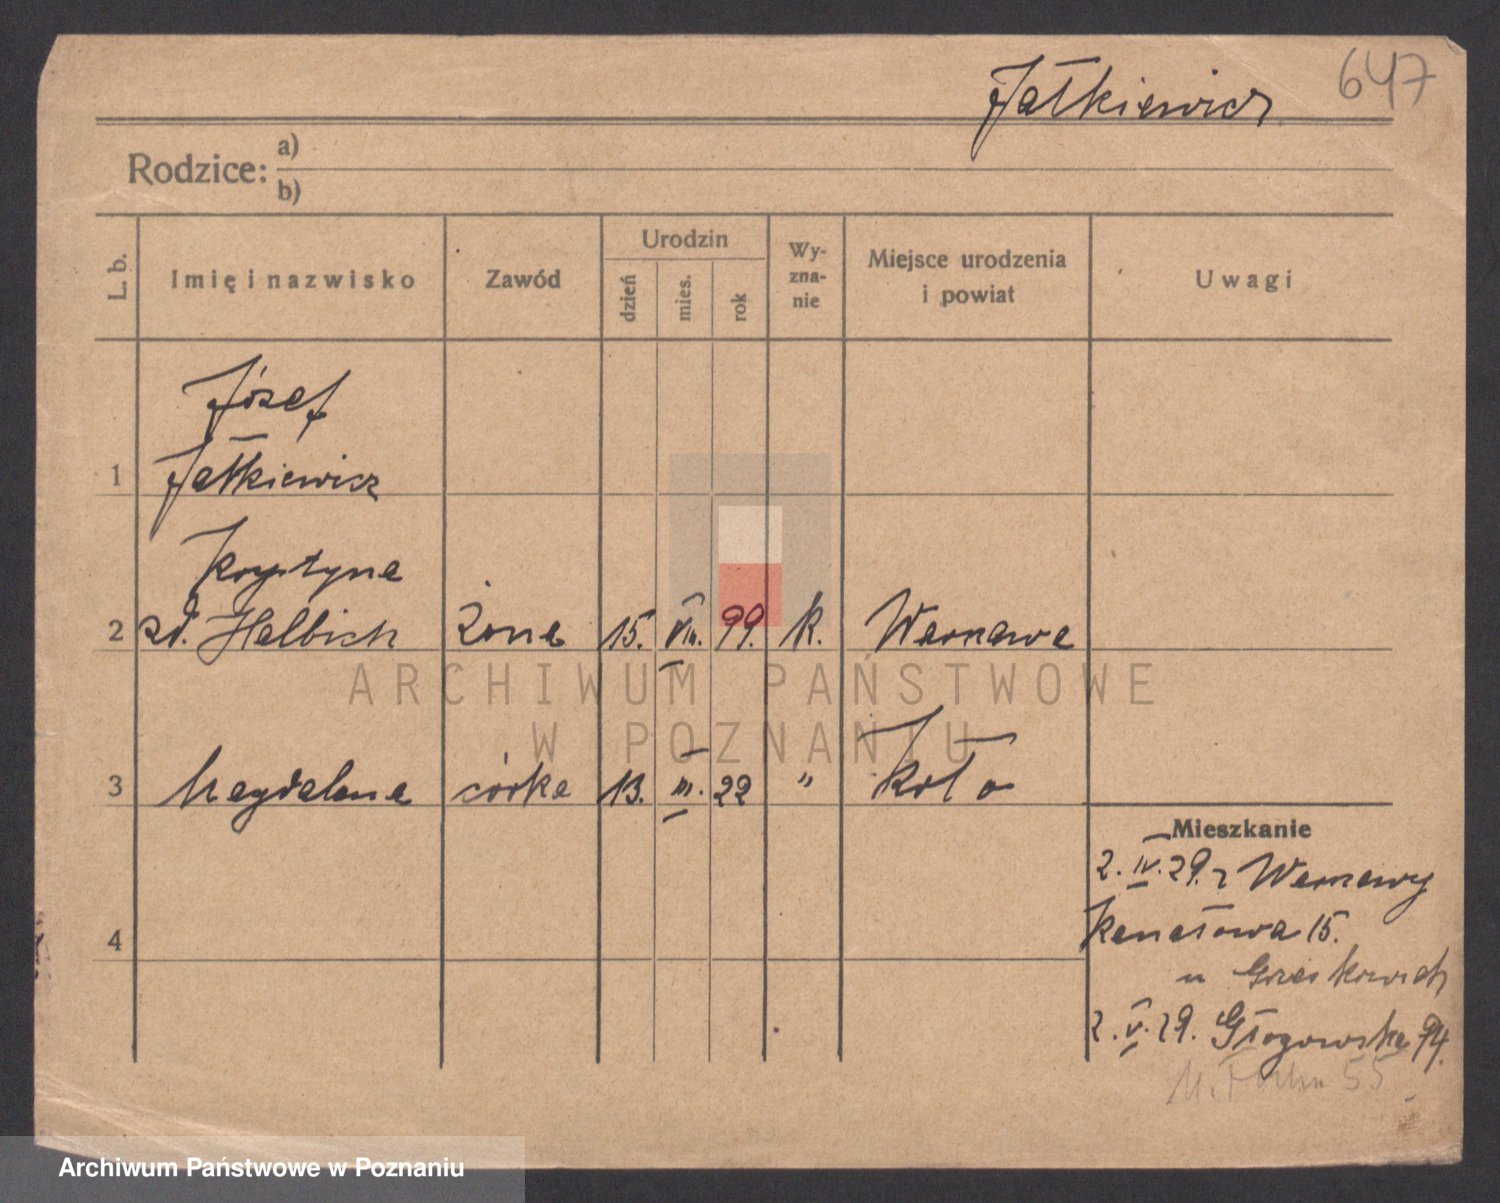 Jałkiewicz 647
Rodzice: a)
b)
L. b. Imię i nazwisko Zawód Urodzin dzień mies. rok Wy-zna-nie Miejsce urodzenia i powiat Uwagi
Józef
1 Jałkiewicz
Krystyna
2 zd. Halbich żona 15. VIII. 99. k. Warszawa
3 Magdalena córka 13. III. 22 " Koło
Mieszkanie
2. IV. 29. z Warszawy
4 Kanałowa 15.
u
2. V. 29. Głogowska 94.
M. Focha 55
ARCHIWUM PAŃSTWOWE
W POZNANIU
Archiwum Państwowe w Poznaniu